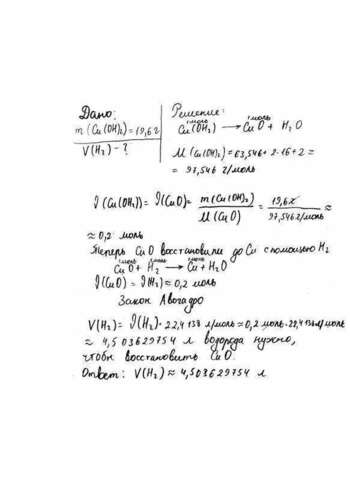 Дано:
m(Cu(OH)₂)=19,6г
V(H₂) - ?
Решение:
1моль 1моль
Cu(OH)₂ → CuO + H₂O
M(Cu(OH)₂) = 63,546 + 2·16 + 2 =
= 97,546 г/моль
ν(Cu(OH)₂) = ν(CuO) = m(Cu(OH)₂) / M(CuO) = 19,6г / 97,546 г/моль ≈
≈ 0,2 моль
Теперь CuO восстановили до Cu с помощью H₂
1моль 1моль 1моль
CuO + H₂ → Cu + H₂O
ν(CuO) = ν(H₂) = 0,2 моль
Закон Авогадро
V(H₂) = ν(H₂)·22,4138 л/моль ≈ 0,2 моль·22,4138 л/моль
≈ 4,503629754 л водорода нужно,
чтобы восстановить CuO.
Ответ: V(H₂) ≈ 4,503629754 л